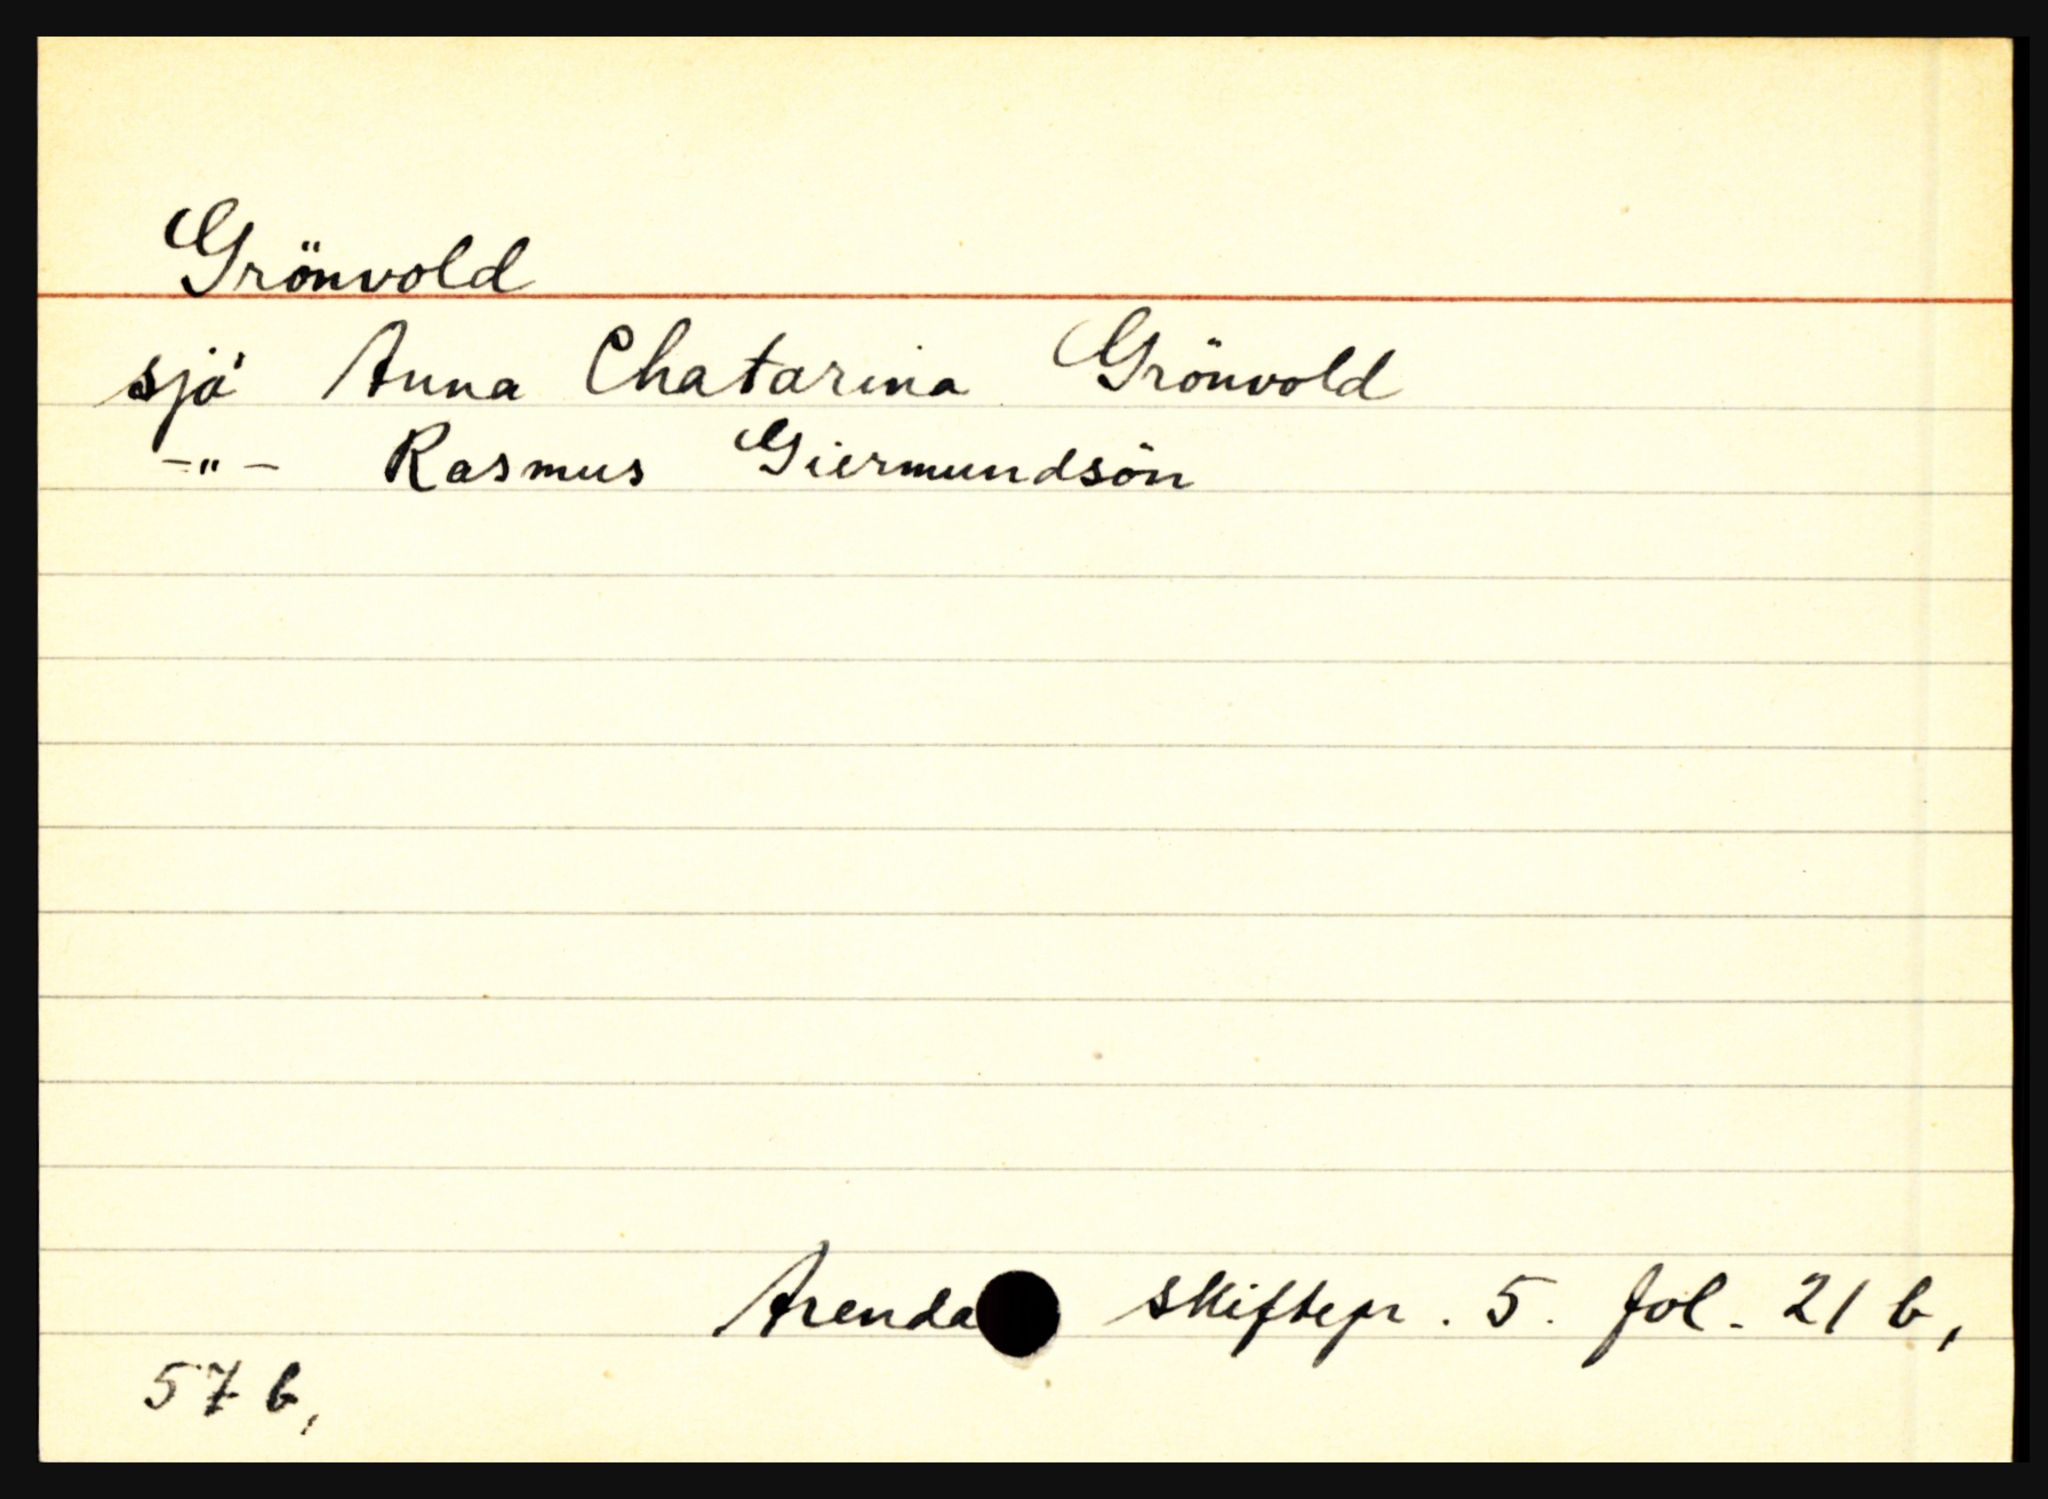 Grönvold
sjå Anna Chatarina Grönvold
-"- Rasmus Giermundsön
Arenda skiftepr. 5. fol. 21 b,
57 b,